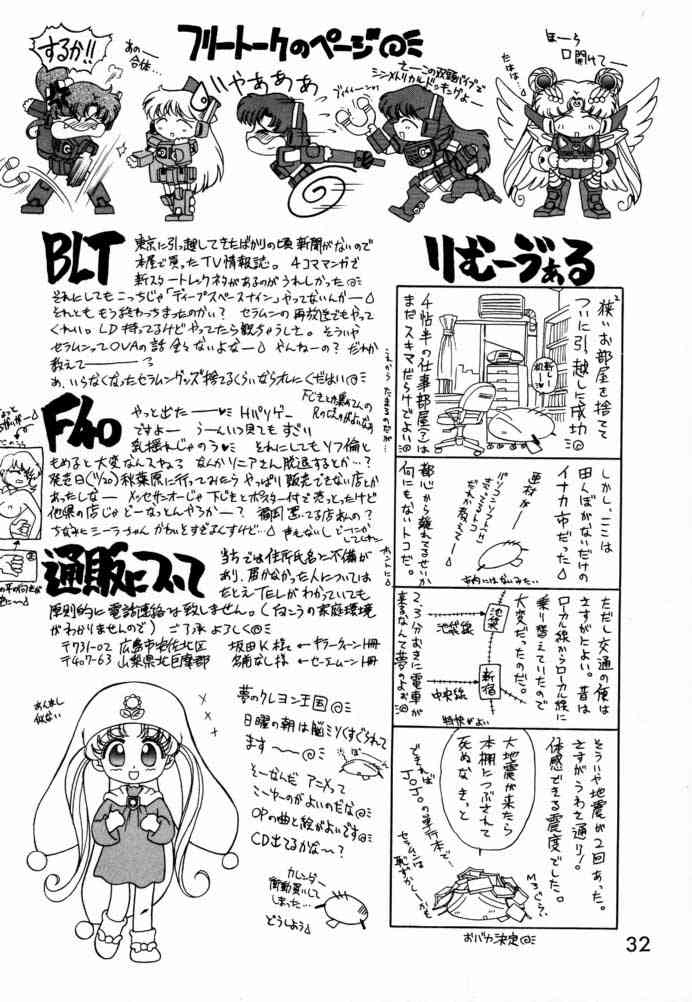 フリートークのページ@ミ
するか!!
あのー
合体…
いやあああ
ほーら
口開けてー
たはは。
BLT
東京に引っ越してきたばかりの頃新聞がないので
本屋で買ったTV情報誌。4コママンガで
新スタートレックネタがあるのがうれしかった@ミ
それにしてもこっちじゃ「ディープスペースナイン」やってないんかー
それとももう終わっちまったのかい? セラムンの再放送でもやって
くれい。LD持ってるけどやってたら観ちゃうしさ。そういや
セラムンってOVAの話全々ないよなー やんねーの? だれか
教えてー
あ、いらなくなったセラムングッズ捨てるくらいならオレにくだはい@ミ
F40
やっと出たー Hパソゲー
ですよー うーんいつ見てもすごい
乳揺れじゃのう それにしてもソフ倫と
もめると大変なんですねえ なんかソニアさん脱退するとか…?
発売日(11/20)秋葉原に行ってみたら やっぱし販売できない店とか
あったしなー メッセサンオーじゃ下じきとポスター付で売っとったけど
他県の店じゃどーなっとんやろか?
通販について
当ちでは住所氏名に不備が
あり、届かなかった人については
たとえTELがわかっていても
原則的に電話連絡は致しません。(向こうの家庭環境
がわかりませんので) ご了承よろしく@ミ
〒731-02 広島市安佐北区 坂田K様
〒407-63 山梨県北巨摩郡 名前なし様
あんまし
似ない
夢のクレヨン王国@ミ
日曜の朝は脳ミソくすぐられて
ます〜
そーなんだ アニメって
こーゆーのがよいのだな@ミ
OPの曲と絵がよいです@ミ
CD出てるかな〜?
カレンダー
衝動買いして
しまった…
どうしよう
りむーぶぁる
狭いお部屋を捨てて
ついに引っ越しに成功
4帖半の仕事部屋(?)は
まだスキマだらけでよい@ミ
しかし、ここは
田んぼがないだけの
イナカ市だった
パソコンソフトは
どこで売ってるトコ
だれか教えてー
市内にはないみたい
都心から離れてるせいか
何にもないトコだ。
ただし交通の便は
さすがによい。昔は
ローカル線からローカル線に
乗り替えていたので
大変だったのだ。
池袋
池袋線
新宿
中央線
特快がよい
2、3分おきに電車が
来るなんて夢のよお@ミ
そういや地震が2回あった。
さすがうわさ通り!
体感できる震度でした。
大地震が来たら
本棚につぶされて
死ぬなきっと
できればJoJoの単行本で…
セラムンは
恥ずかしーかも
おバカ決定@ミ
32